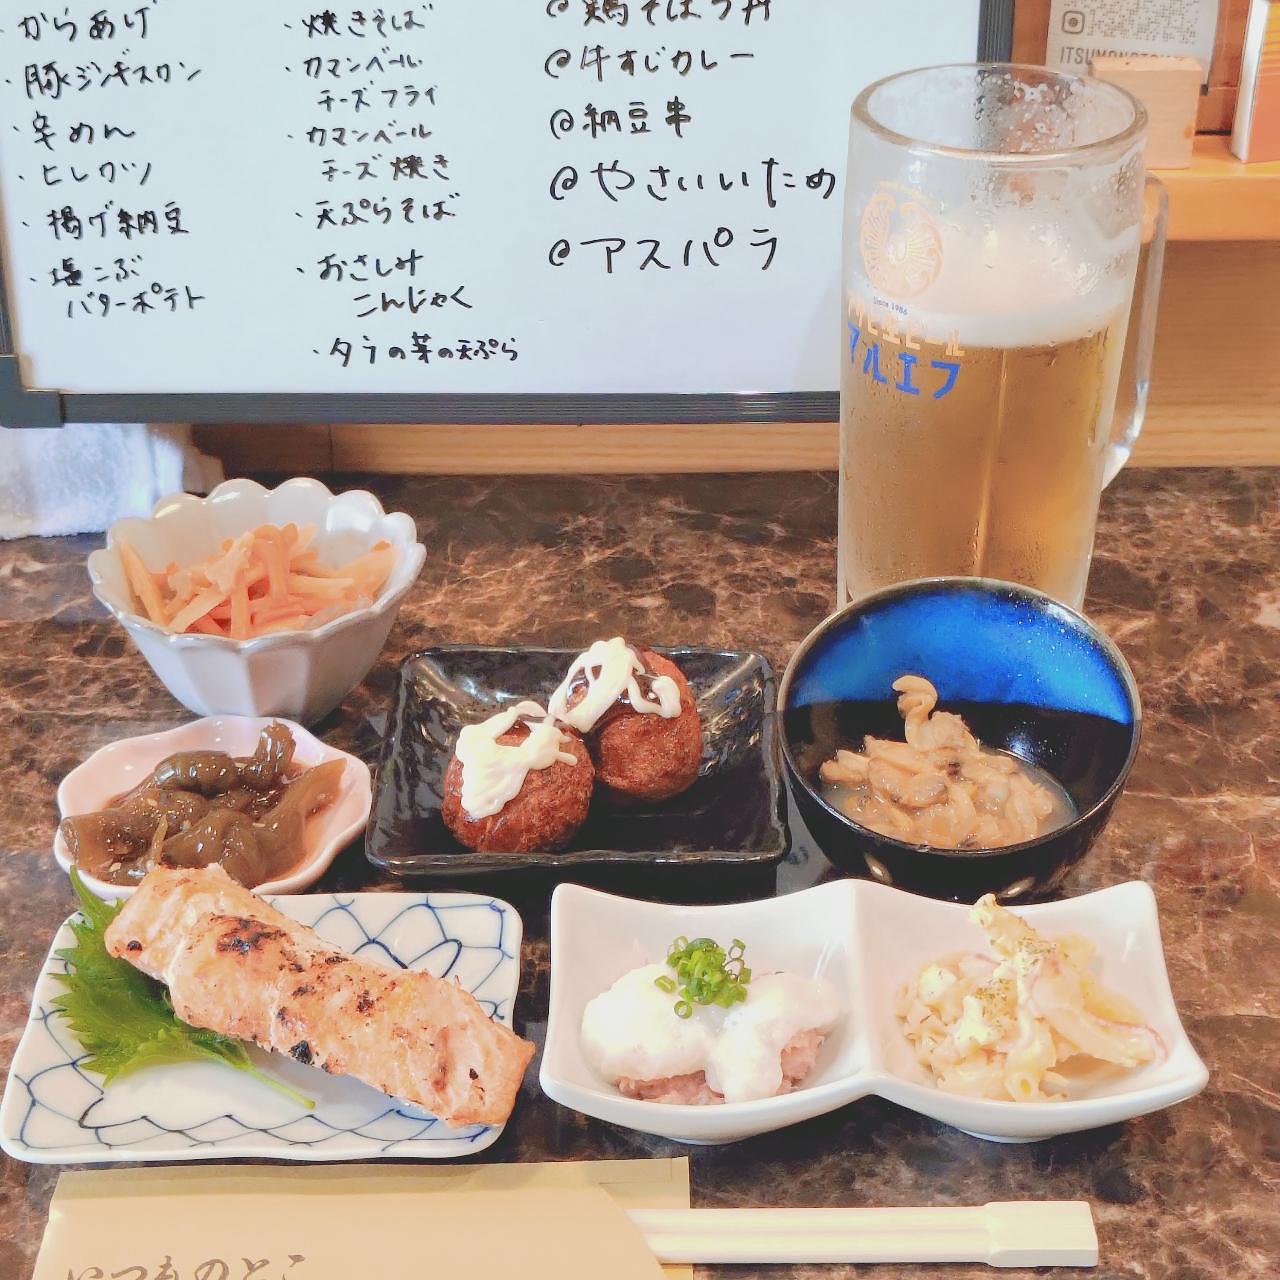 からあげ
・豚ジンギスカン
・辛めん
・ヒレカツ
・揚げ納豆
・塩こぶ
バターポテト
・焼きそば
・カマンベール
チーズフライ
・カマンベール
チーズ焼き
・天ぷらそば
・おさしみ
こんにゃく
・タラの芽の天ぷら
@鶏そぼろ丼
@牛すじカレー
@納豆串
@やさいいため
@アスパラ
Since 1986
アサヒ生ビール
マルエフ
いつものとこ